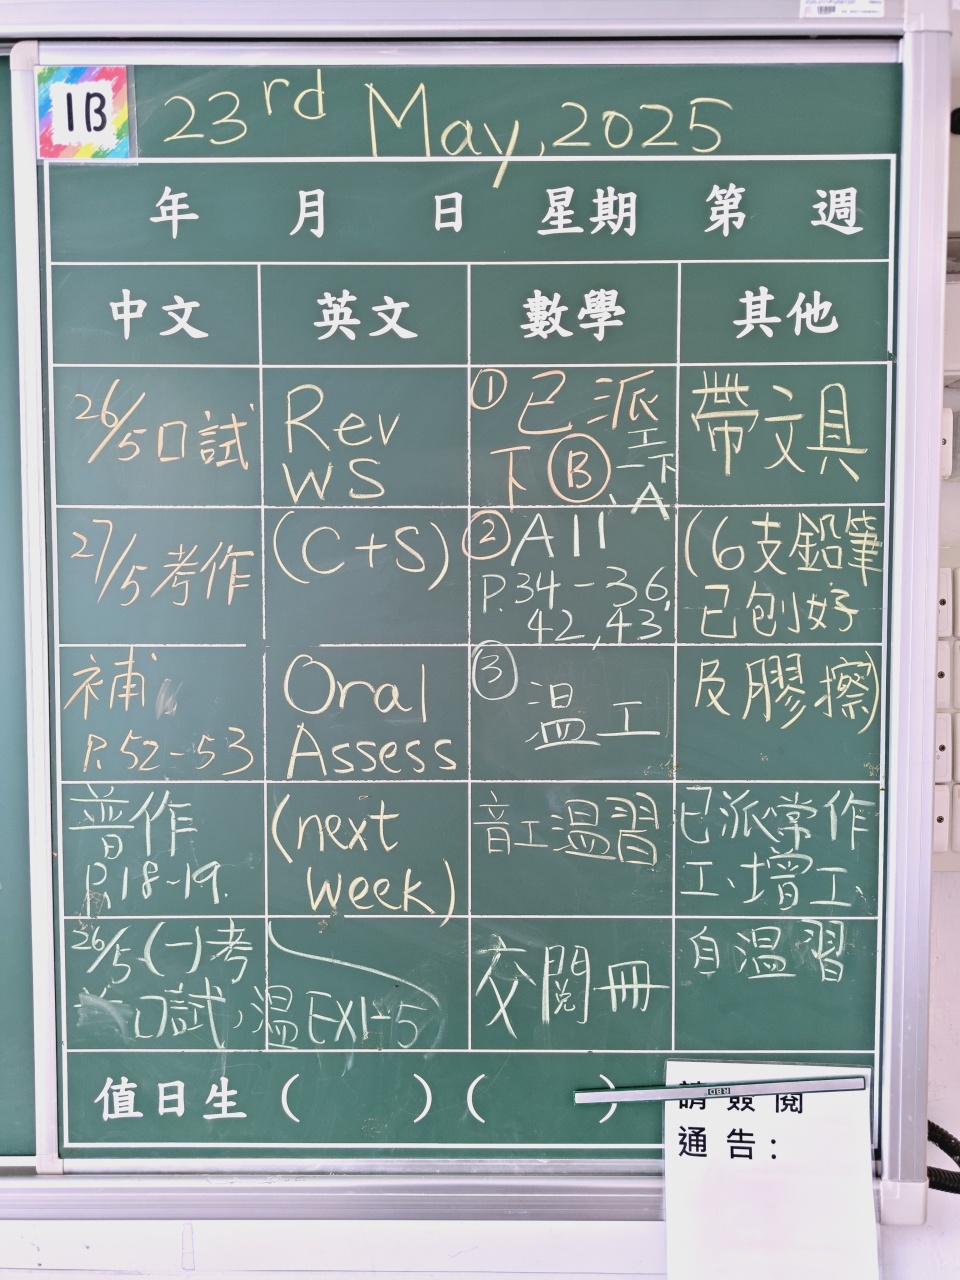 1B
23rd May, 2025
年 月 日 星期 第 週
中文 英文 數學 其他
26/5口試
27/5考作
補
P.52-53
普作
P.18-19.
26/5(一)考
口試,溫EX1-5
Rev
WS
(C+S)
Oral
Assess
(next
week)
① 已派
下Ⓑ
工
一下
、A
② All
P.34-36,
42,43
③
溫工
音工溫習
交閱冊
帶文具
(6支鉛筆
已刨好
及膠擦)
已派常作
工、增工、
自溫習
值日生 ( ) ( )
請簽閱
通告: